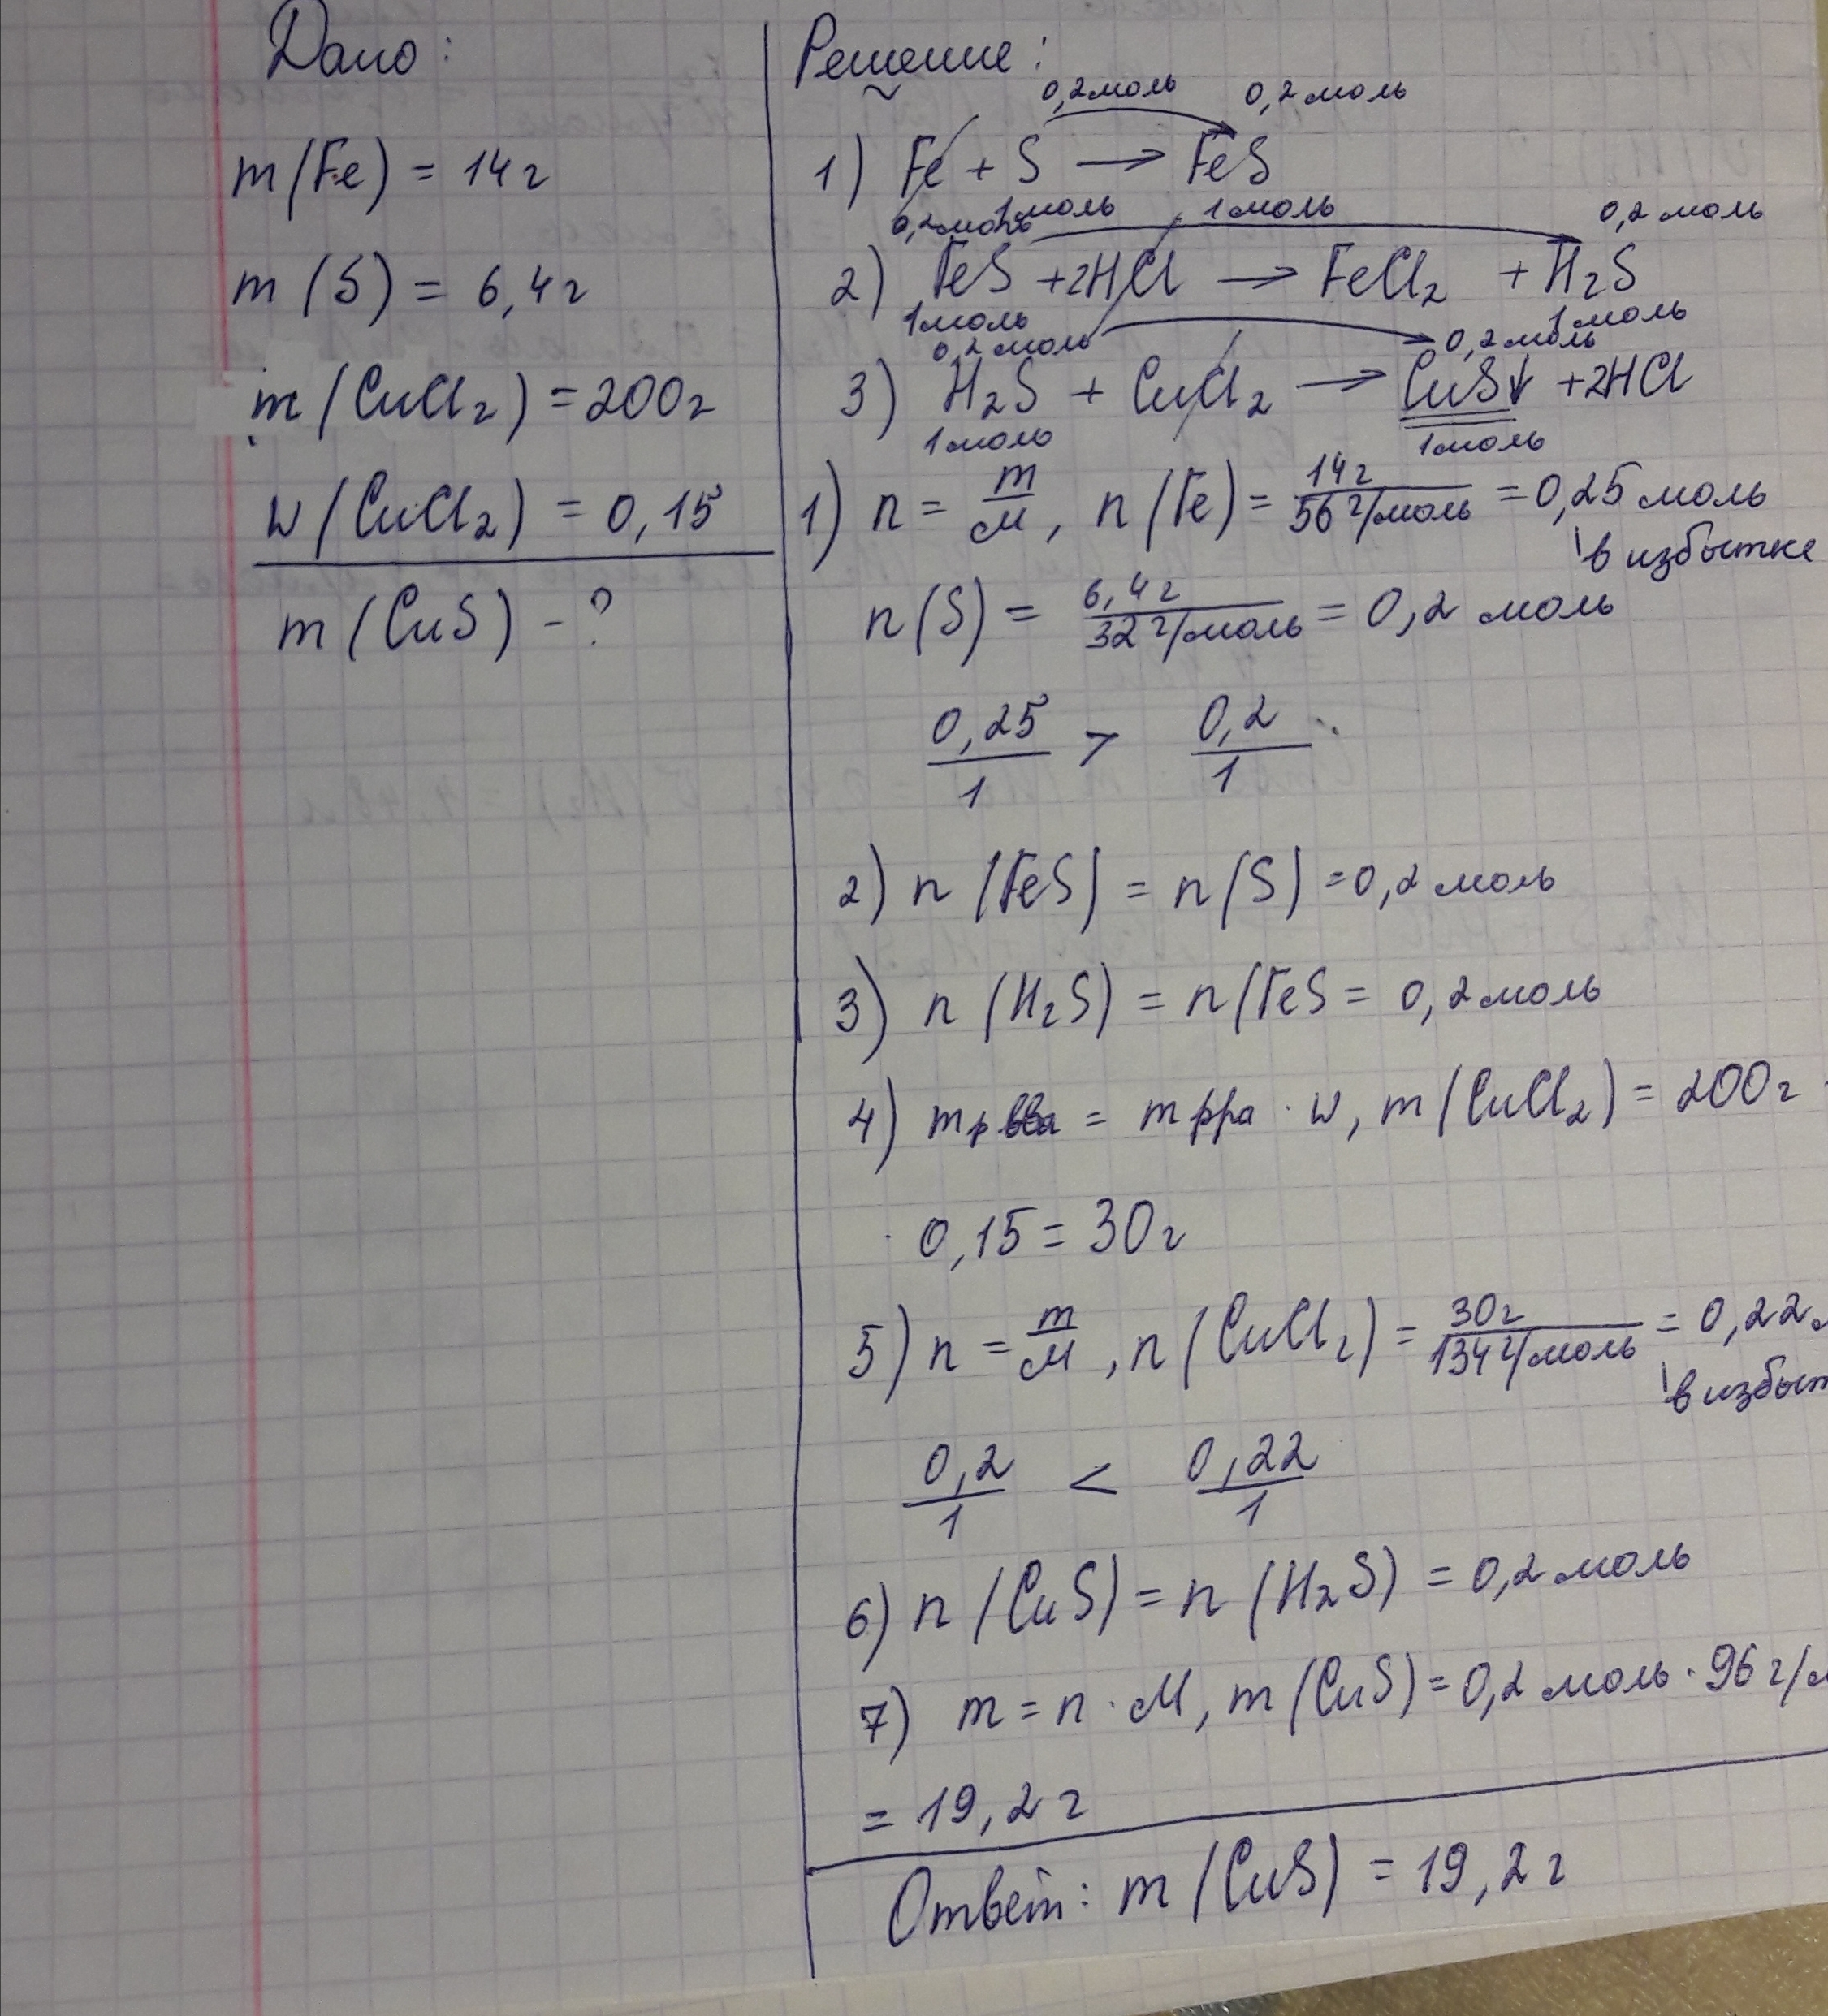 Дано:
m(Fe) = 14г
m(S) = 6,4г
m(CuCl₂) = 200г
w(CuCl₂) = 0,15
m(CuS) - ?
Решение:
0,2моль 0,2моль
1) Fe + S → FeS
1моль 1моль
0,2моль 0,2моль
2) FeS + 2HCl → FeCl₂ + H₂S
1моль 1моль
0,2моль 0,2моль
3) H₂S + CuCl₂ → CuS↓ + 2HCl
1моль 1моль
1) n = m/M, n(Fe) = 14г/56г/моль = 0,25моль
в избытке
n(S) = 6,4г/32г/моль = 0,2 моль
0,25/1 > 0,2/1
2) n(FeS) = n(S) = 0,2моль
3) n(H₂S) = n(FeS = 0,2моль
4) mр вва = m рра · w, m(CuCl₂) = 200г ·
· 0,15 = 30г
5) n = m/M, n(CuCl₂) = 30г/134г/моль = 0,22м
в избыт
0,2/1 < 0,22/1
6) n(CuS) = n(H₂S) = 0,2моль
7) m = n · M, m(CuS) = 0,2 моль · 96г/м
= 19,2г
Ответ: m(CuS) = 19,2г